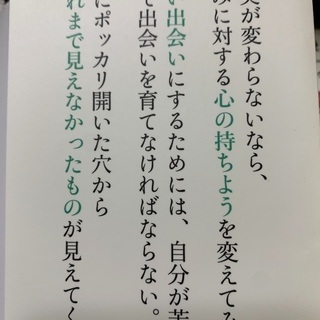 が変わらないなら、
みに対する心の持ちようを変えてみ
い出会いにするためには、自分が苦
で出会いを育てなければならない。
にポッカリ開いた穴から
れまで見えなかったものが見えてく